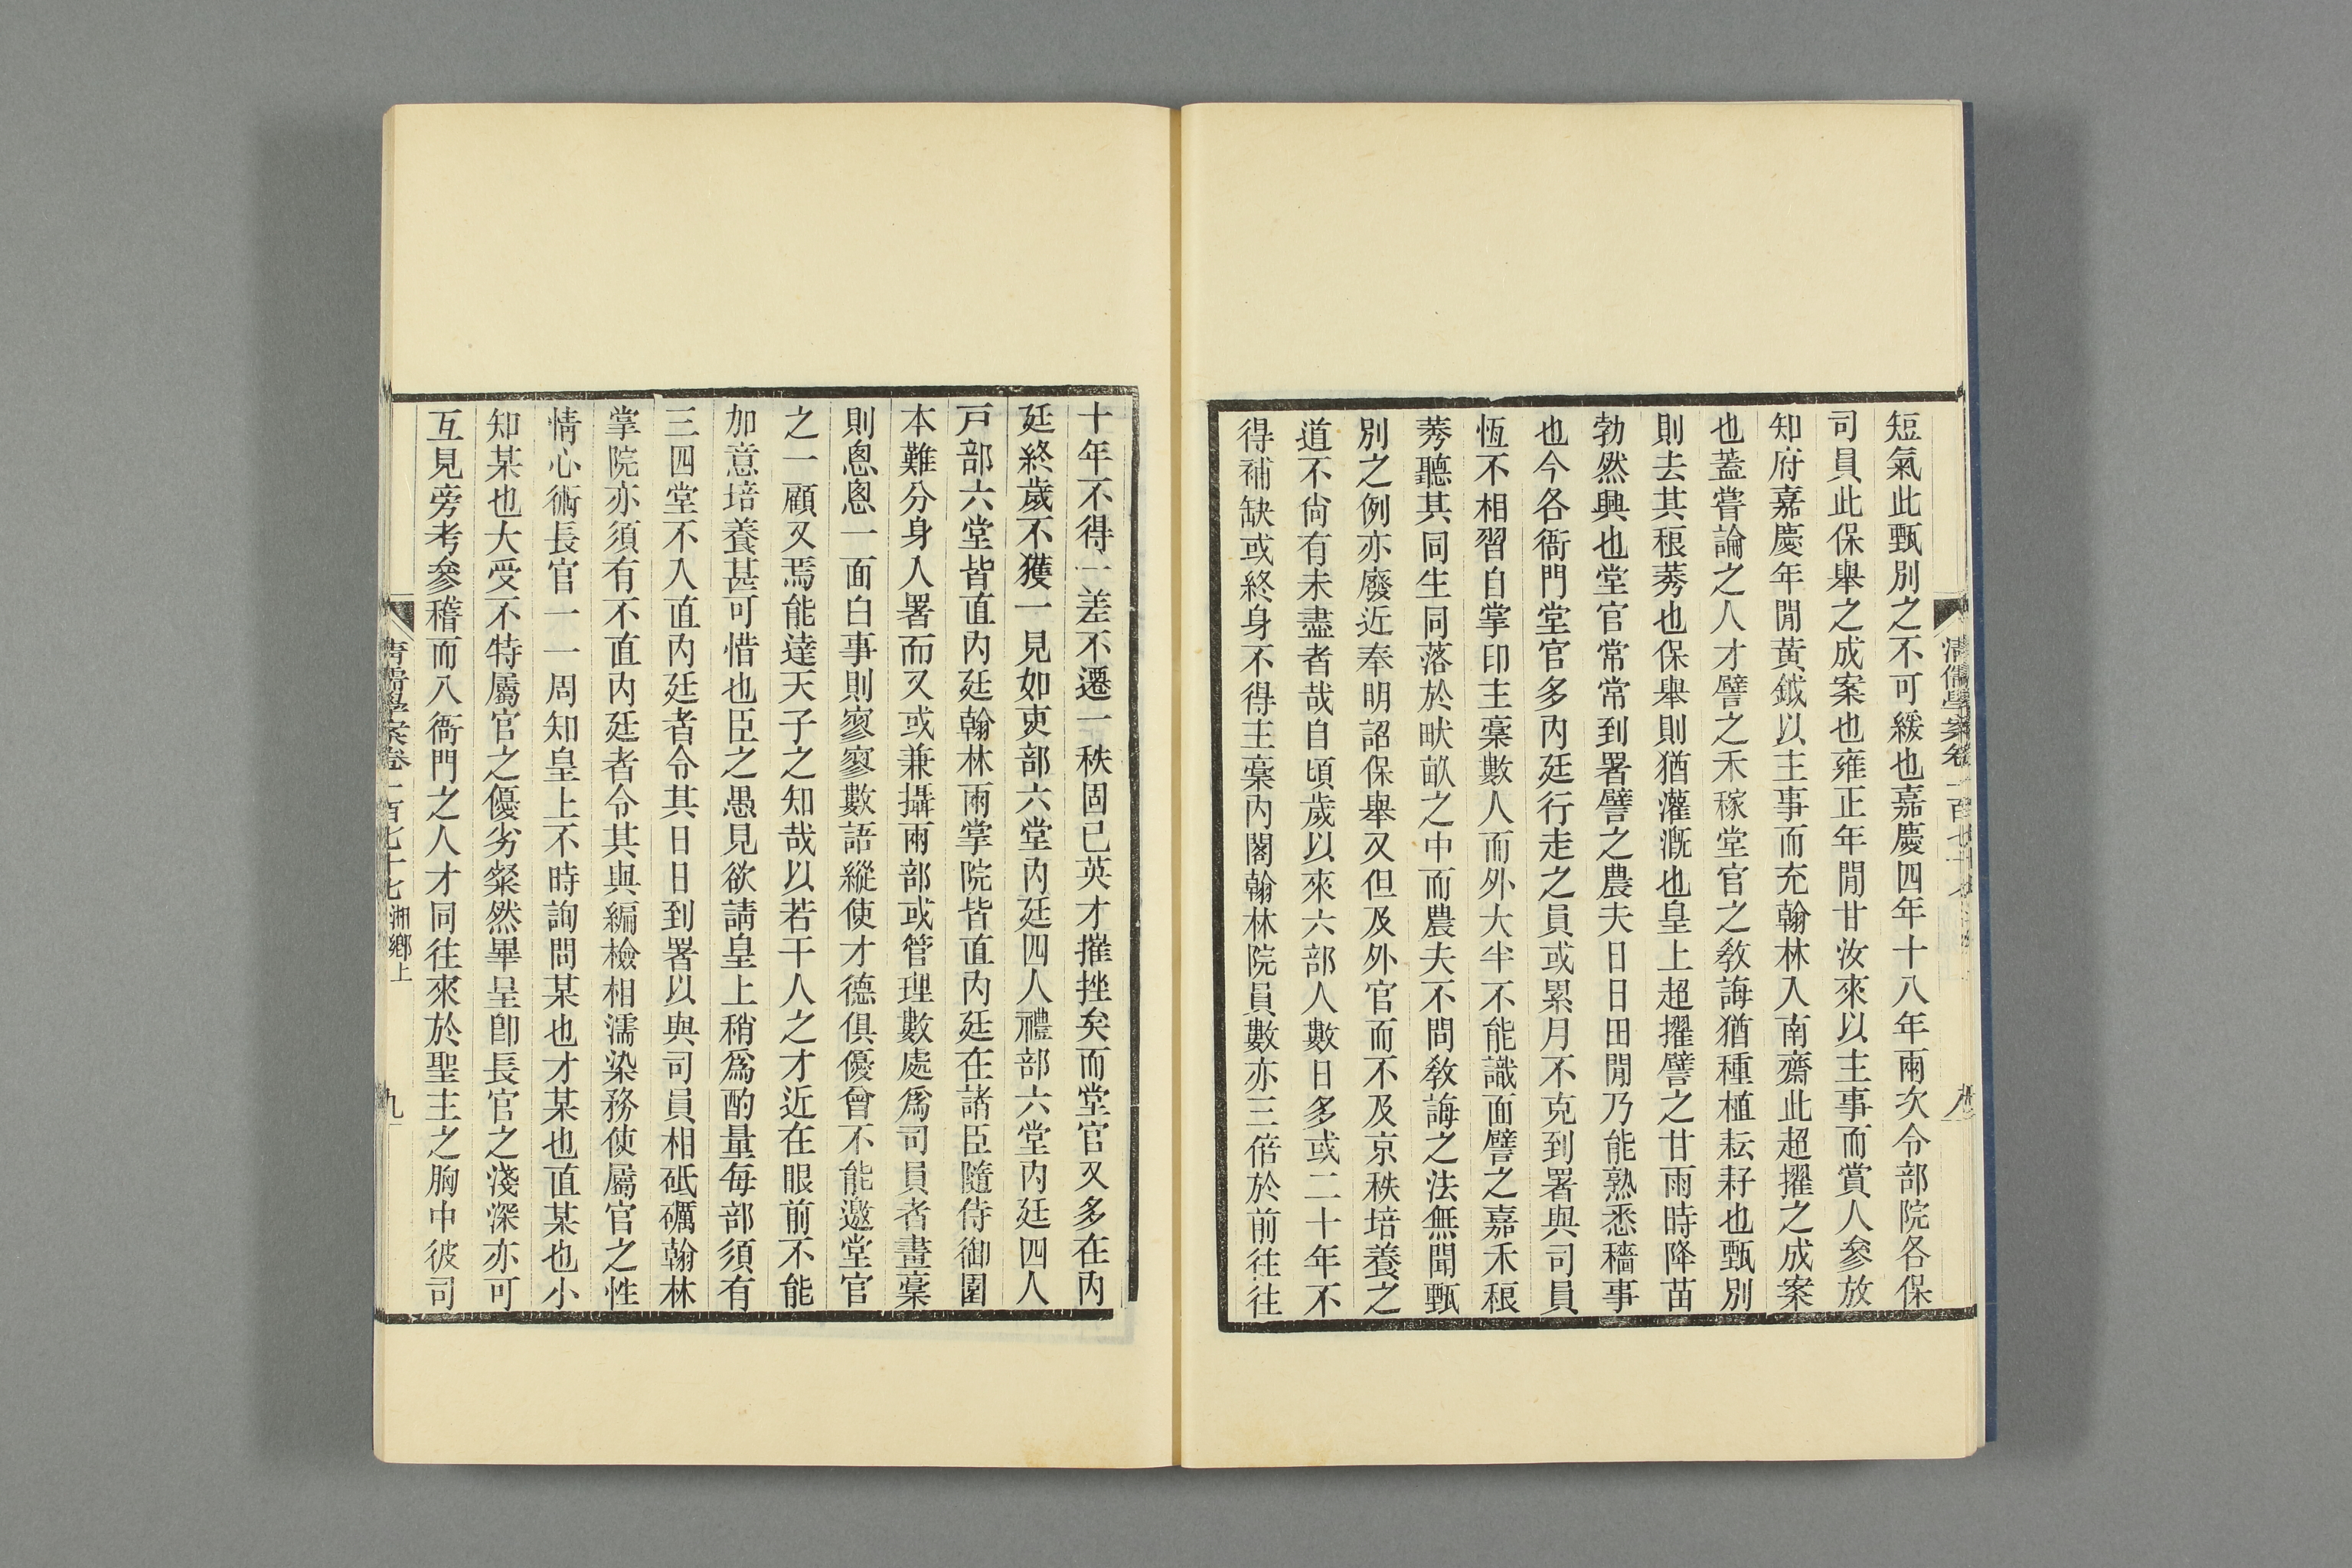 短氣此甄別之不可緩也嘉慶四年十八年兩次令部院各保
司員此保舉之成案也雍正年閒甘汝來以主事而賞人參放
知府嘉慶年閒黃鉞以主事而充翰林入南齋此超擢之成案
也蓋嘗論之人才譬之禾稼堂官之敎誨猶種植耘耔也甄別
則去其稂莠也保舉則猶灌漑也皇上超擢譬之甘雨時降苗
勃然興也堂官常常到署譬之農夫日日田閒乃能熟悉穡事
也今各衙門堂官多內廷行走之員或累月不克到署與司員
恆不相習自掌印主稾數人而外大半不能識面譬之嘉禾稂
莠聽其同生同落於畎畝之中而農夫不問敎誨之法無聞甄
別之例亦廢近奉明詔保舉又但及外官而不及京秩培養之
道不尙有未盡者哉自頃歲以來六部人數日多或二十年不
得補缺或終身不得主稾內閣翰林院員數亦三倍於前往往
十年不得一差不遷一秩固已英才摧挫矣而堂官又多在內
廷終歲不獲一見如吏部六堂內廷四人禮部六堂內廷四人
戶部六堂皆直內廷翰林兩掌院皆直內廷在諸臣隨侍御園
本難分身入署而又或兼攝兩部或管理數處爲司員者畫稾
則悤悤一面白事則寥寥數語縱使才德俱優曾不能邀堂官
之一顧又焉能達天子之知哉以若干人之才近在眼前不能
加意培養甚可惜也臣之愚見欲請皇上稍爲酌量每部須有
三四堂不入直內廷者令其日日到署以與司員相砥礪翰林
掌院亦須有不直內廷者令其與編檢相濡染務使屬官之性
情心術長官一一周知皇上不時詢問某也才某也直某也小
知某也大受不特屬官之優劣粲然畢呈卽長官之淺深亦可
互見旁考參稽而八衙門之人才同往來於聖主之胸中彼司
淸儒學案卷一百七十七 湘鄕上
九